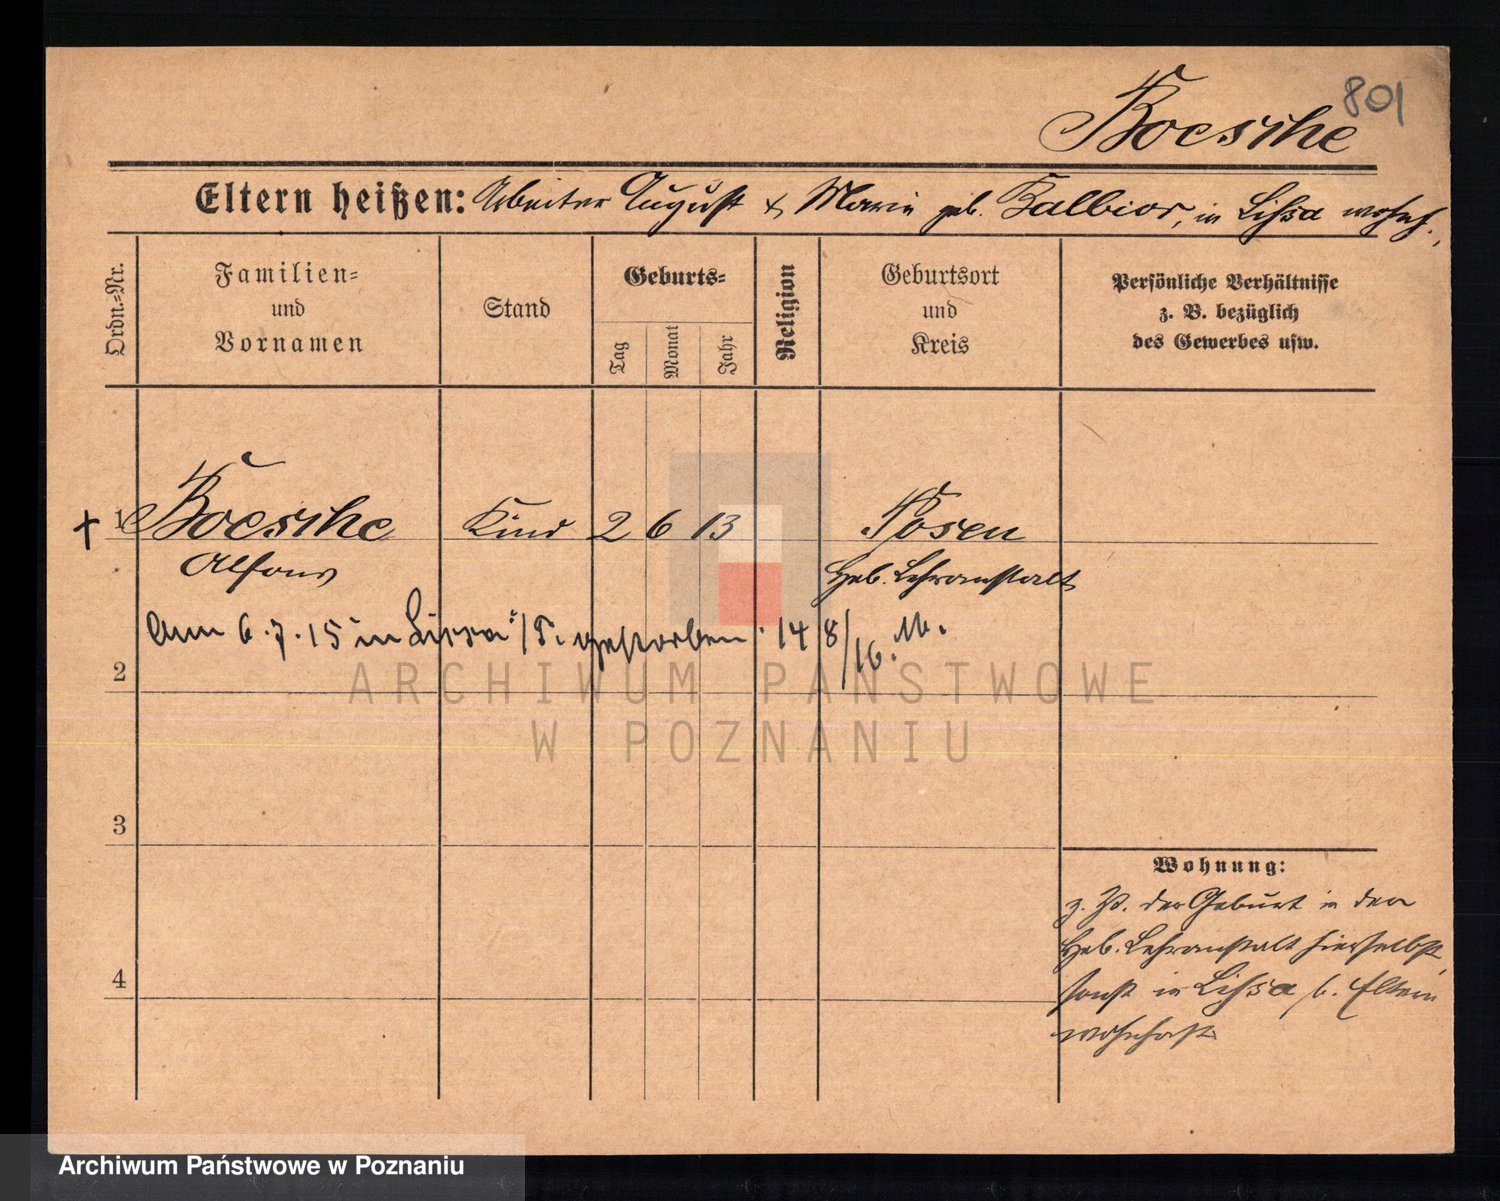 801
Boesche
Eltern heißen: Arbeiter August + Marie geb. Kalbior, in Lissa wohnh.,
Ordn.-Nr.
Familien-
und
Vornamen
Stand
Geburts-
Tag
Monat
Jahr
Religion
Geburtsort
und
Kreis
Persönliche Verhältnisse
z. B. bezüglich
des Gewerbes usw.
+ 1 Boesche Kind 2 6 13 Posen
Alfons Heb. Lehranstalt
am 6.7.15 in Lissa i/P. gestorben. 14 8/16.
2
3
4
Wohnung:
z. Zt. der Geburt in der
Heb. Lehranstalt hierselbst,
sonst in Lissa b. Eltern
wohnhaft
ARCHIWUM PAŃSTWOWE
W POZNANIU
Archiwum Państwowe w Poznaniu